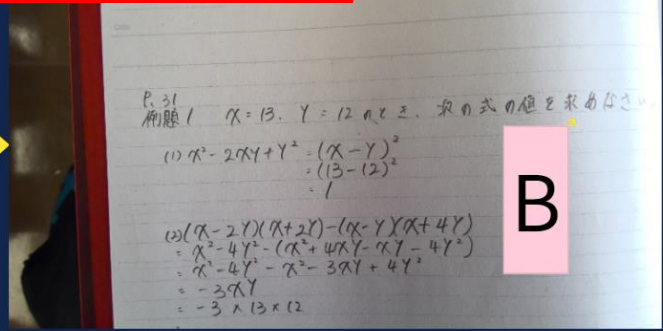 P. 31
例題 1 x = 13, y = 12 のとき, 次の式の値を求めなさい。
(1) x² - 2xy + y² = (x - y)²
= (13 - 12)²
= 1
(2) (x - 2y)(x + 2y) - (x - y)(x + 4y)
= x² - 4y² - (x² + 4xy - xy - 4y²)
= x² - 4y² - x² - 3xy + 4y²
= - 3xy
= - 3 × 13 × 12
B